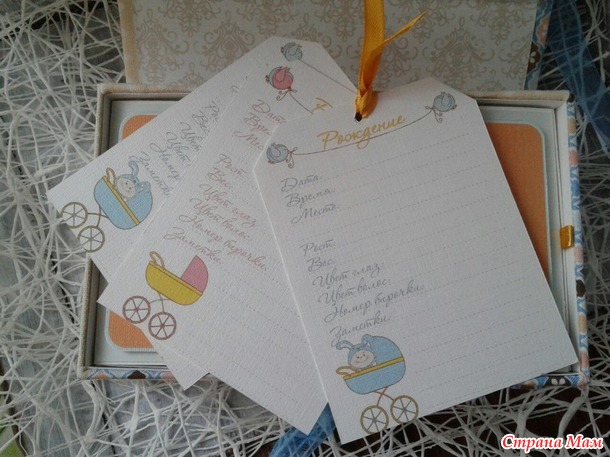 Рождение
Дата:
Время:
Место:
Рост:
Вес:
Цвет глаз:
Цвет волос:
Номер бирочки:
Заметки:
Дата:
Время:
Место:
Рост:
Вес:
Цвет глаз:
Цвет волос:
Номер бирочки:
Заметки:
Рост:
Вес:
Цвет глаз:
Цвет волос:
Номер бирочки:
Заметки:
Страна Мам